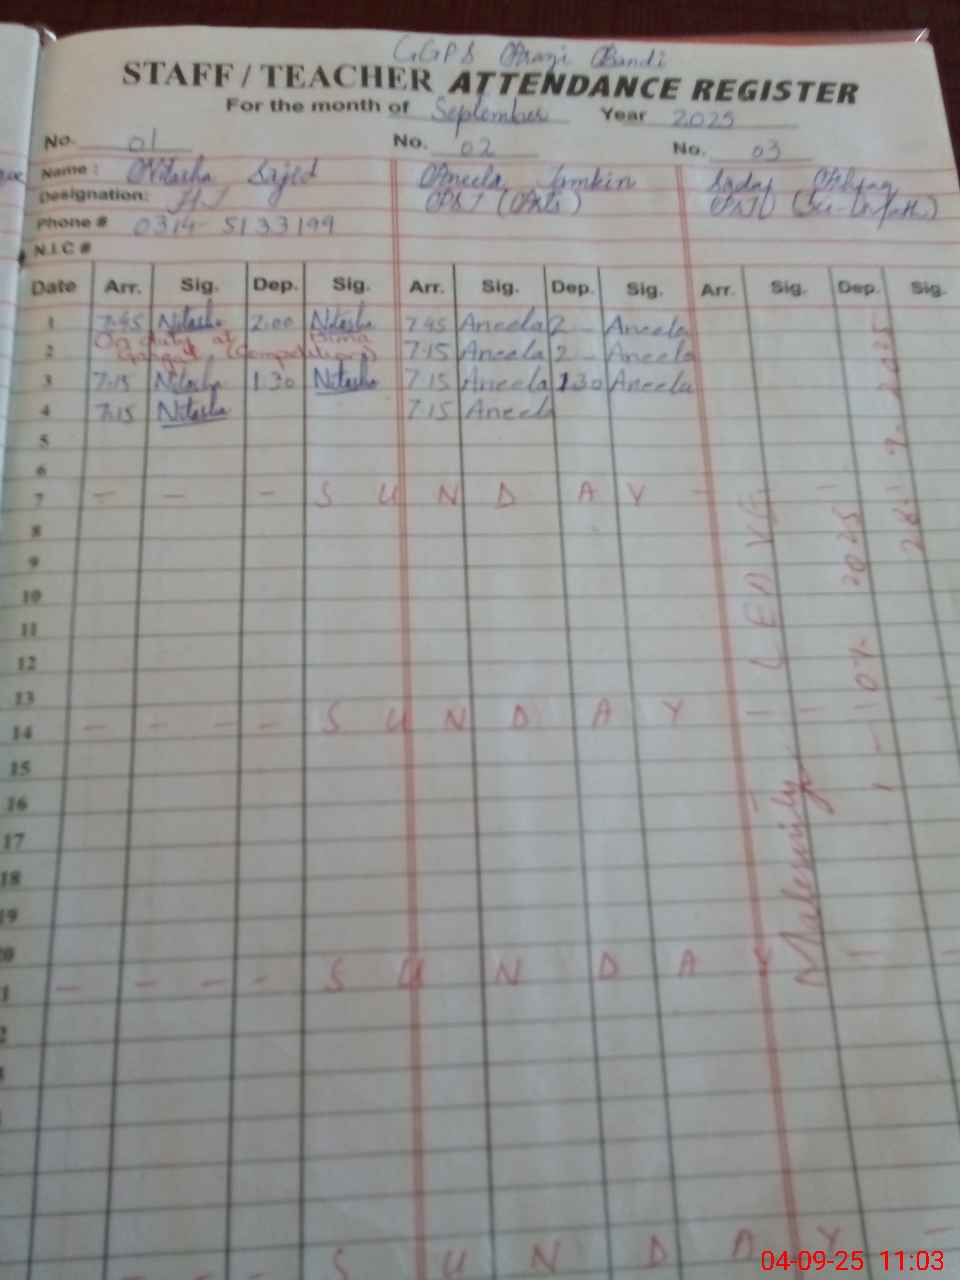 GGPS Arazi Bandi
STAFF / TEACHER ATTENDANCE REGISTER
For the month of September Year 2025
No. 01 No. 02 No. 03
Name: Nitasha Sajed Aneela Sadaf
Designation: PST (Arts)
Phone # 0314-5133199
N.I.C #
Date Arr. Sig. Dep. Sig. Arr. Sig. Dep. Sig. Arr. Sig. Dep. Sig.
1 7:45 Nitasha 2:00 Nitasha 7 45 Aneela 2 - Aneela
On duty at
2 (Competition) 7:15 Aneela 2 - Aneela
3 7:15 Nitasha 1:30 Nitasha 7 15 Aneela 130 Aneela
4 7:15 Nitasha 7:15 Aneela
5
6
7 - - - S U N D A Y -
8
9
10
11
12
13
14 - - - - S U N D A Y - -
15
16
17
18
19
20
1 - - - - S U N D A Y - -
2
S U N D A Y -
Maternity LEAVE
04-09-25 11:03